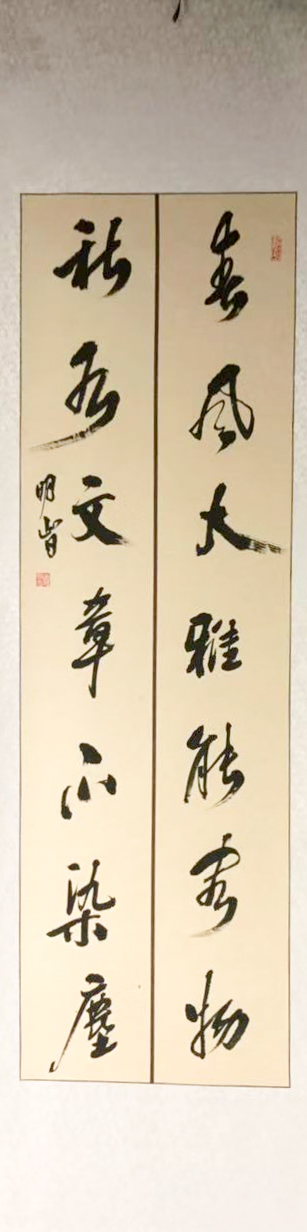 春風大雅能容物
秋水文章不染塵
明